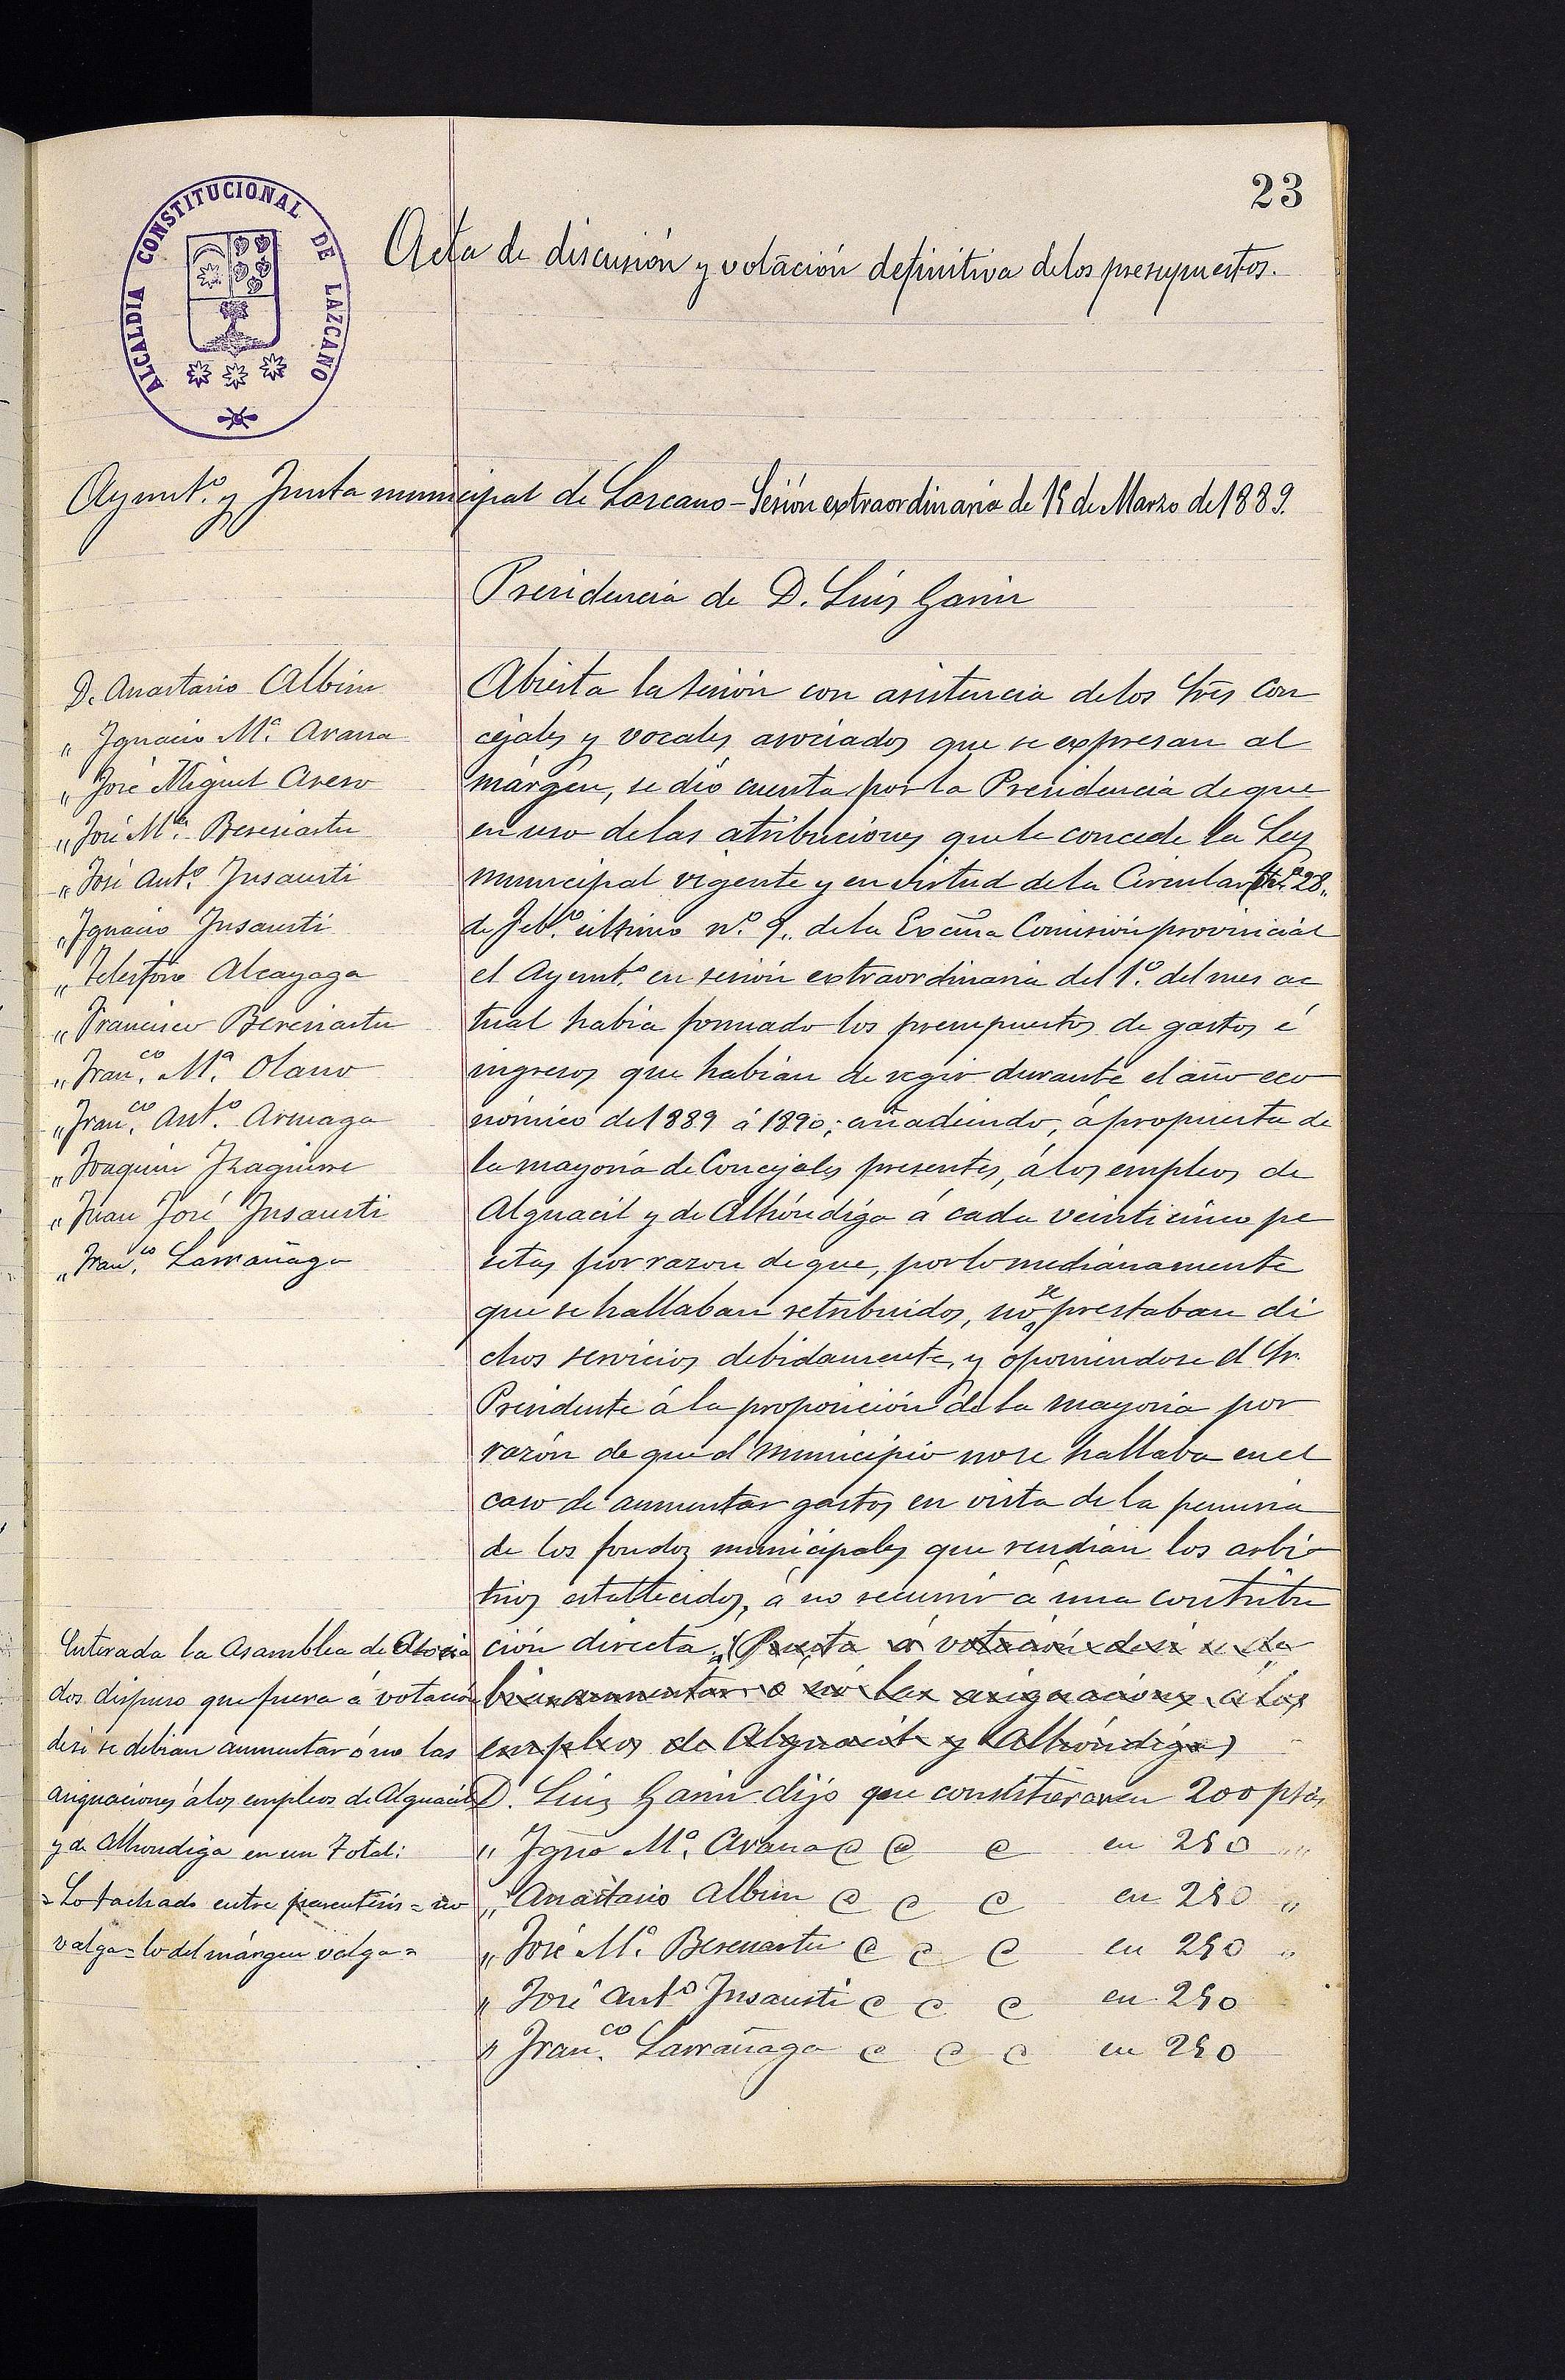 23
ALCALDIA CONSTITUCIONAL DE LAZCANO
Acta de discusión y votación definitiva de los presupuestos.
Ayunt.º y Junta municipal de Lazcano - Sesión extraordinaria de 15 de Marzo de 1889.
Presidencia de D. Luis Garin
D. Anastasio Albisu
" Ignacio M.ª Arana
" José Miguel
" José M.ª Beresiartu
" José Ant.º Insausti
" Ignacio Insausti
" Telesforo Alcayaga
" Francisco Beresiartu
" Fran.co M.ª Olano
" Fran.co Ant.º Arruaga
" Joaquin Izaguirre
" Juan José Insausti
" Fran.co Larrañaga
Abierta la sesión con asistencia de los Sres Con
cejales y vocales asociados que se expresan al
márgen, se dió cuenta por la Presidencia de que
en uso de las atribuciones que le concede la Ley
municipal vigente y en virtud de la Circular fha 28,
de Feb.º último n.º 9,, de la Excma Comisión provincial
el Ayunt.º en sesión extraordinaria del 1.º del mes ac
tual habia formado los presupuestos de gastos é
ingresos que habian de regir durante el año eco
nómico de 1889 á 1890; añadiendo, á propuesta de
la mayoría de Concejales presentes, á los empleos de
Alguacil y de Alhóndiga á cada veinticinco pe
setas por razon de que, por lo medianamente
que se hallaban retribuidos, no se prestaban di
chos servicios debidamente, y oponiendose el Sr.
Presidente á la proposición de la mayoria por
razón de que el municipio no se hallaba en el
caso de aumentar gastos en vista de la penuria
de los fondos municipales que rendian los arbi
trios establecidos, á no recurrir á una contribu
ción directa, (Puesta á votación de si se de
bian aumentar ó no las asignaciones á los
empleos de Alguacil y Alhóndiga)
Enterada la Asamblea de Asocia
dos dispuso que fuera á votación
de si se debian aumentar ó no las
asignaciones á los empleos de Alguacil
y de Alhondiga en un total:
= Lo tachado entre parentesis = no
valga = lo del márgen valga =
D. Luis Garin dijo que consistieran en 200 ptas
" Igno M.ª Arana @ @ @ en 250 "
" Anastasio Albisu @ @ @ en 250 "
" José M.ª Beresiartu @ @ @ en 250 "
" José Ant.º Insausti @ @ @ en 250
" Fran.co Larrañaga @ @ @ en 250